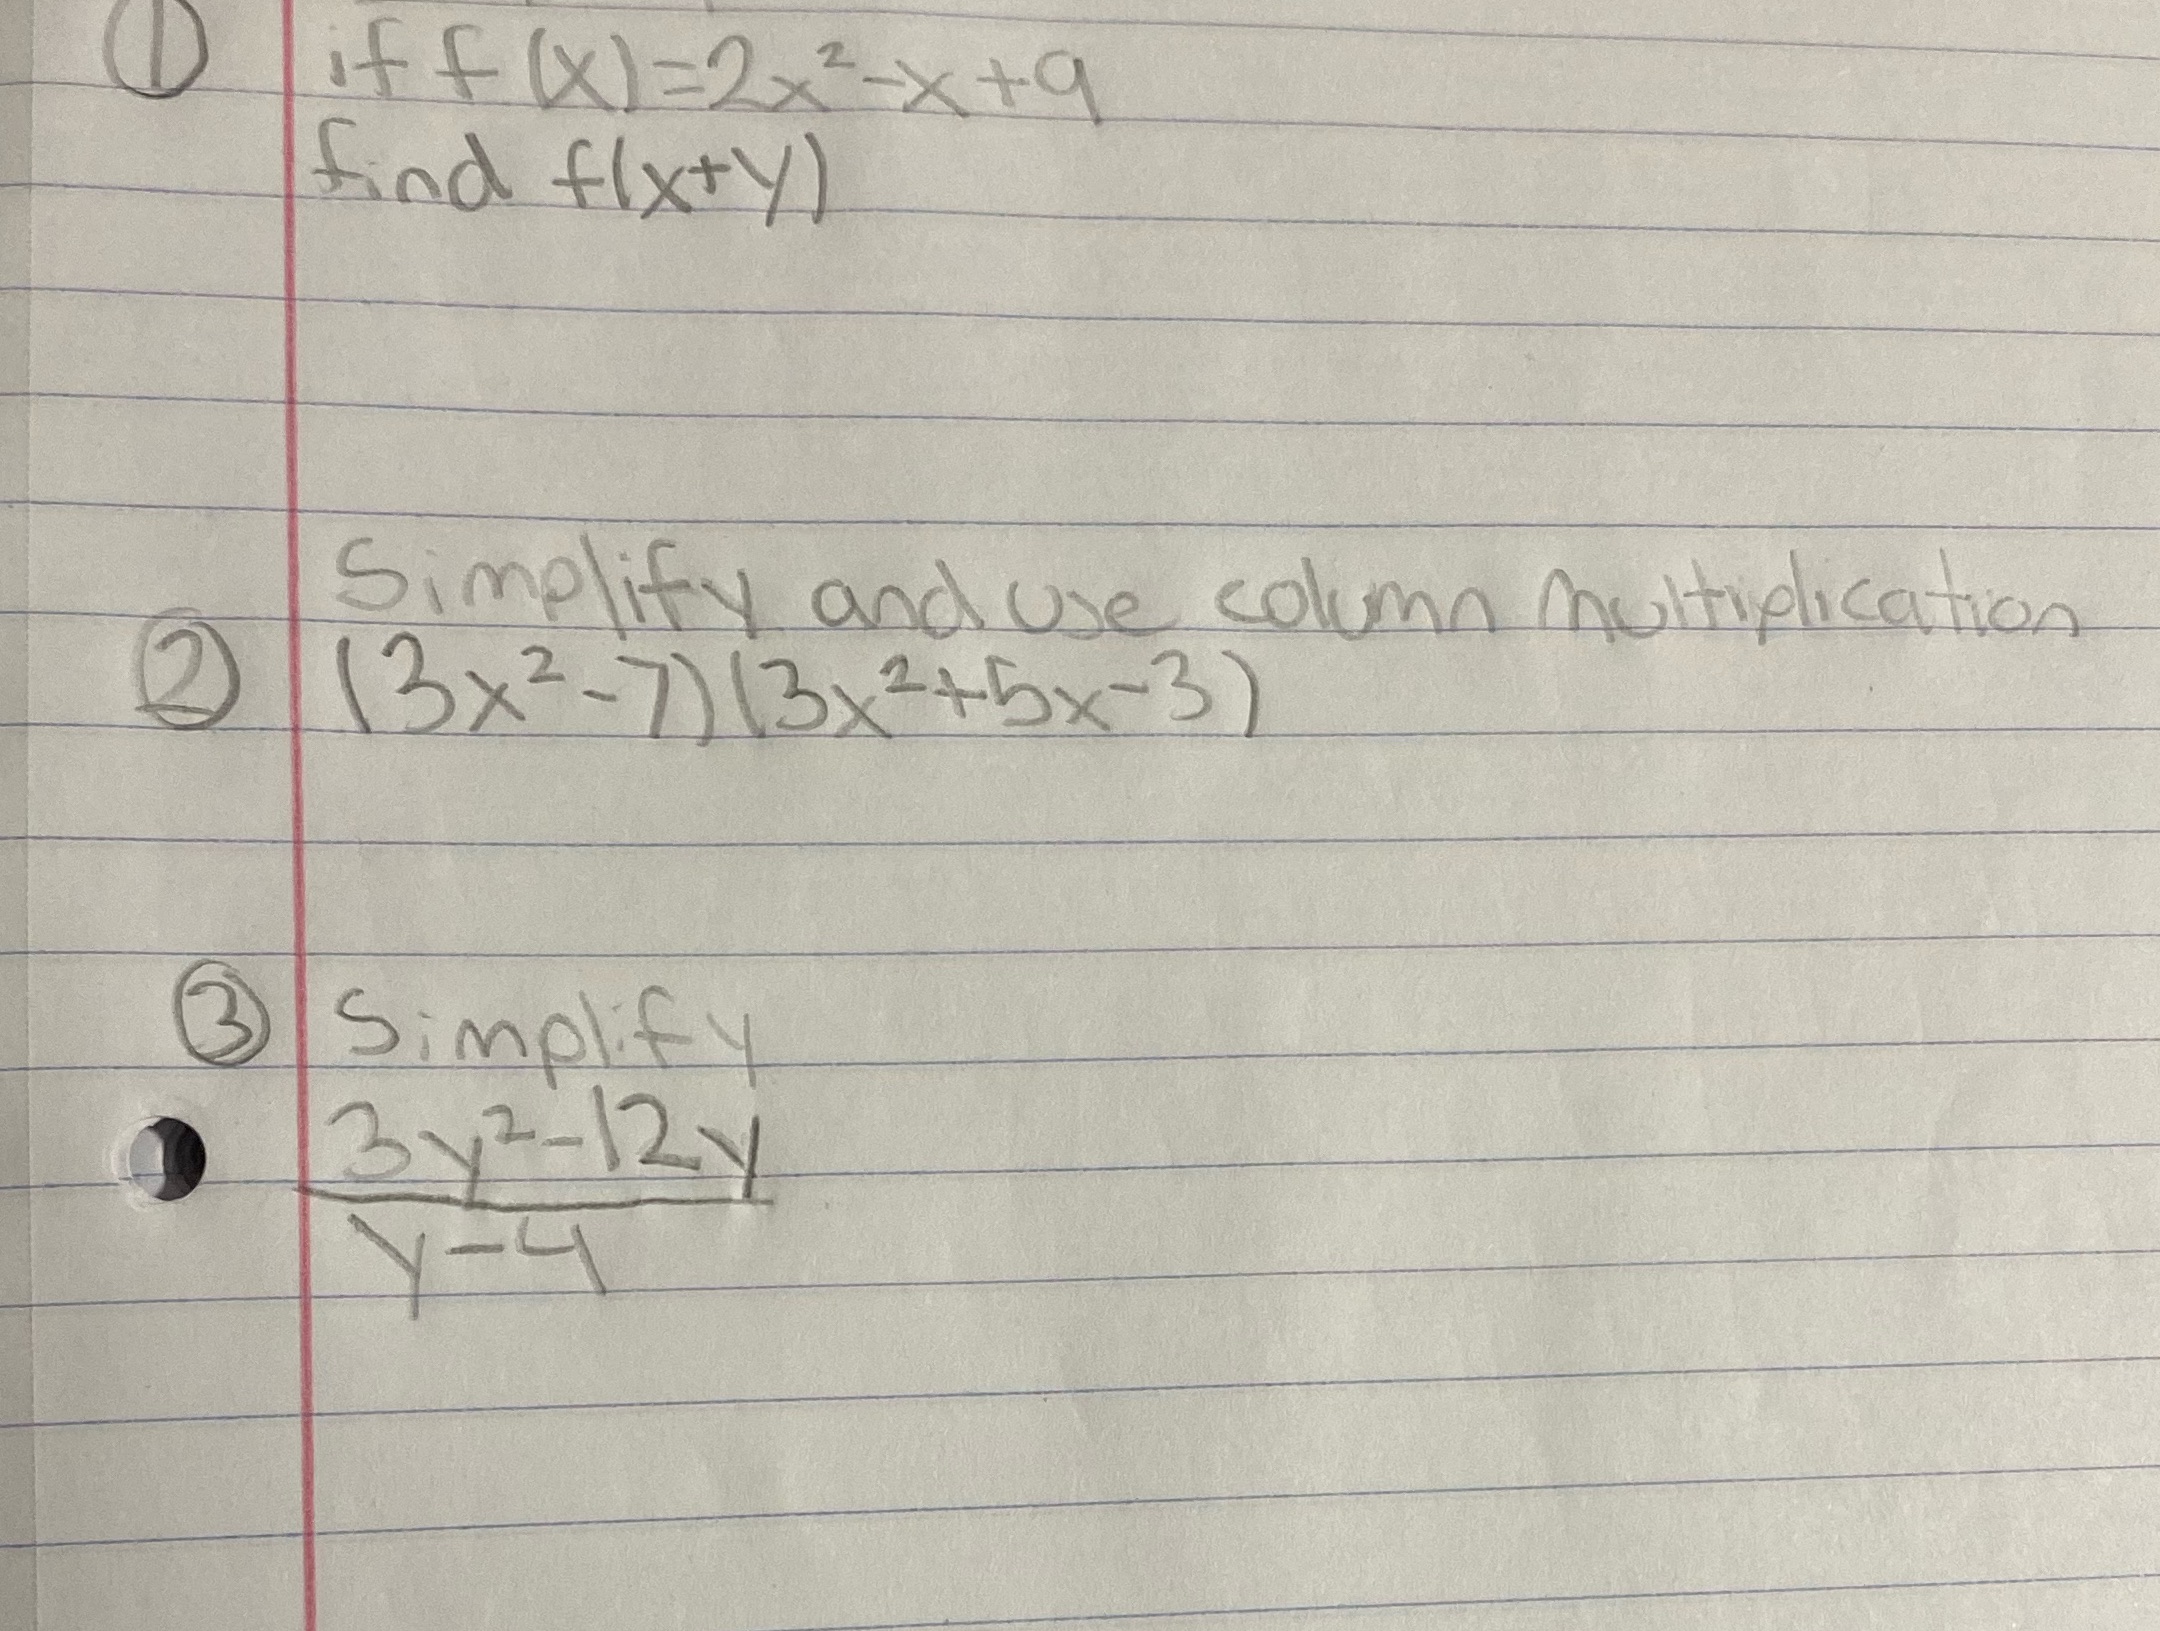 ① if f(x)=2x²-x+9
find f(x+y)
Simplify and use column multiplication
② (3x²-7)(3x²+5x-3)
③ Simplify
3y²-12y
y-4